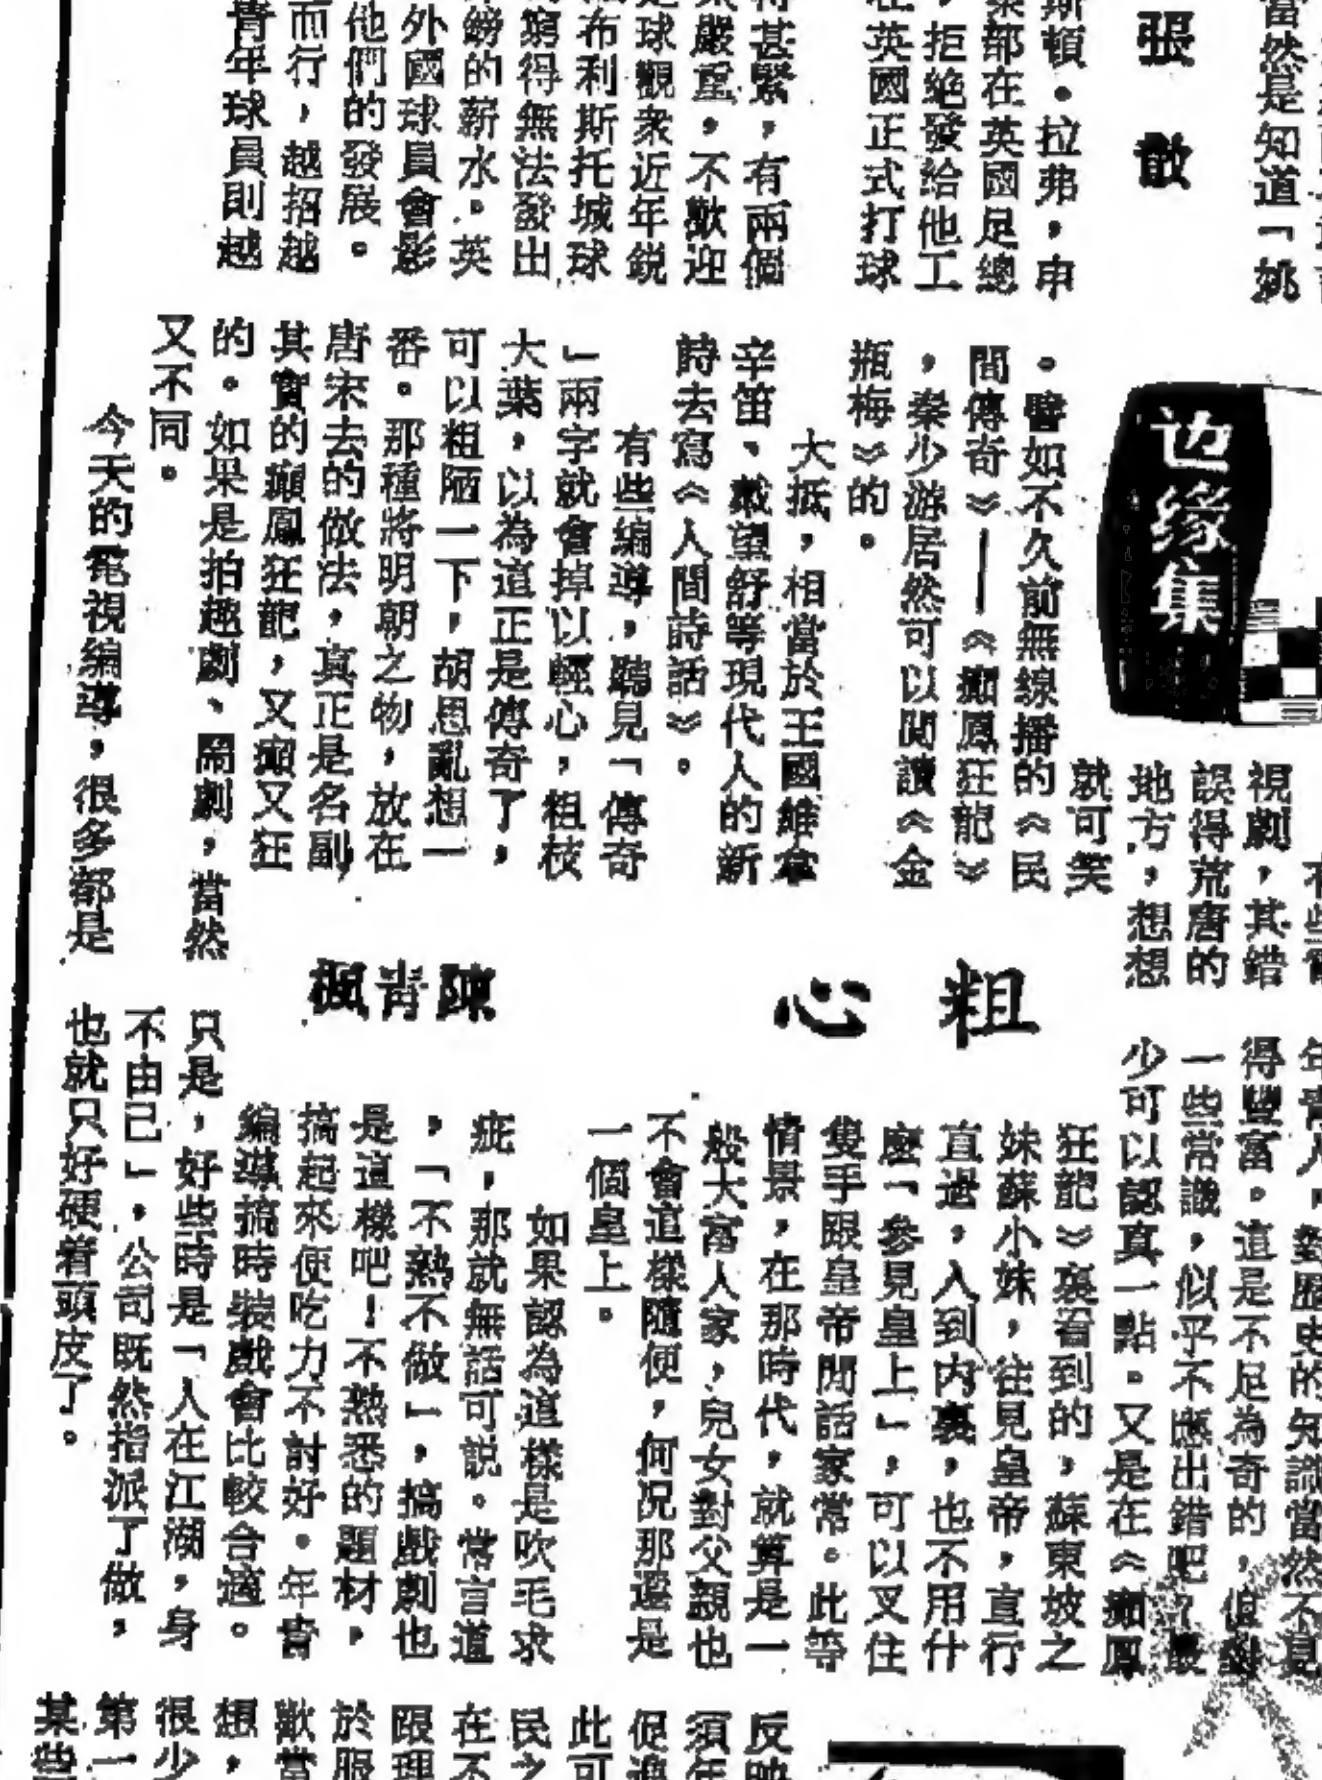 當然是知道「姚
張敢
斯頓。拉弗，申
部在英國足總
，拒絕發給他工
在英國正式打球
得甚緊，有兩個
嚴重，不歡迎
足球觀衆近年銳
布利斯托城球
窮得無法發出
的薪水。英
外國球員會影
他們的發展。
而行，越招越
青年球員則越
边缘集
粗心
陳青楓
視劇，其錯
誤得荒唐的
地方，想想
就可笑
。譬如不久前無線播的《民
間傳奇》——《癲鳳狂龍》
，秦少游居然可以閱讀《金
瓶梅》的。
大抵，相當於王國維拿
辛笛、戴望舒等現代人的新
詩去寫《人間詩話》。
有些編導，聽見「傳奇
」兩字就會掉以輕心，粗枝
大葉，以為這正是傳奇了，
可以粗陋一下，胡思亂想一
番。那種將明朝之物，放在
唐宋去的做法，真正是名副
其實的癲鳳狂龍，又癲又狂
的。如果是拍趣劇、鬧劇，當然
又不同。
今天的電視編導，很多都是
年青人，對歷史的知識當然不見
得豐富。這是不足為奇的，但對
一些常識，似乎不應出錯吧？最
少可以認真一點。又是在《癲鳳
狂龍》裏看到的，蘇東坡之
妹蘇小妹，往見皇帝，直行
直過，入到內裏，也不用什
麼「參見皇上」，可以叉住
隻手跟皇帝閒話家常。此等
情景，在那時代，就算是一
般大富人家，兒女對父親也
不會這樣隨便，何況那還是
一個皇上。
如果認為這樣是吹毛求
疵，那就無話可說。常言道
，「不熟不做」，搞戲劇也
是這樣吧！不熟悉的題材，
搞起來便吃力不討好。年青
編導搞時裝戲會比較合適。
只是，好些時是「人在江湖，身
不由己」，公司既然指派了做，
也就只好硬着頭皮了。
反映
須年
促進
此可
民之
在不
跟理
於服
歡當
想，
很少
第一
某些